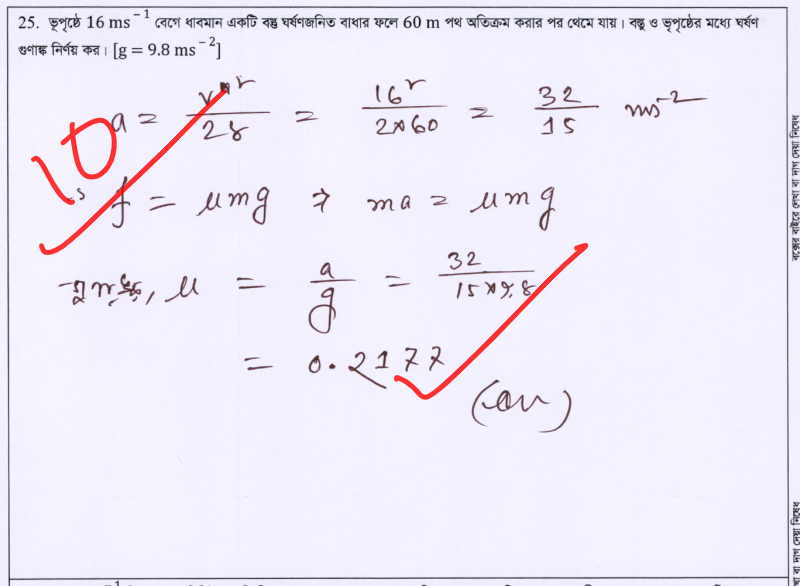 25. ভূপৃষ্ঠে 16 ms⁻¹ বেগে ধাবমান একটি বস্তু ঘর্ষণজনিত বাধার ফলে 60 m পথ অতিক্রম করার পর থেমে যায়। বস্তু ও ভূপৃষ্ঠের মধ্যে ঘর্ষণ
গুণাঙ্ক নির্ণয় কর। [g = 9.8 ms⁻²]
a = v²/2s = 16²/2×60 = 32/15 ms⁻²
10
f = μmg ⇒ ma = μmg
μ = a/g = 32/15×9.8
= 0.2177
(Ans)
বক্সের বাইরে লেখা বা দাগ দেয়া নিষেধ
বা দাগ দেয়া নিষেধ